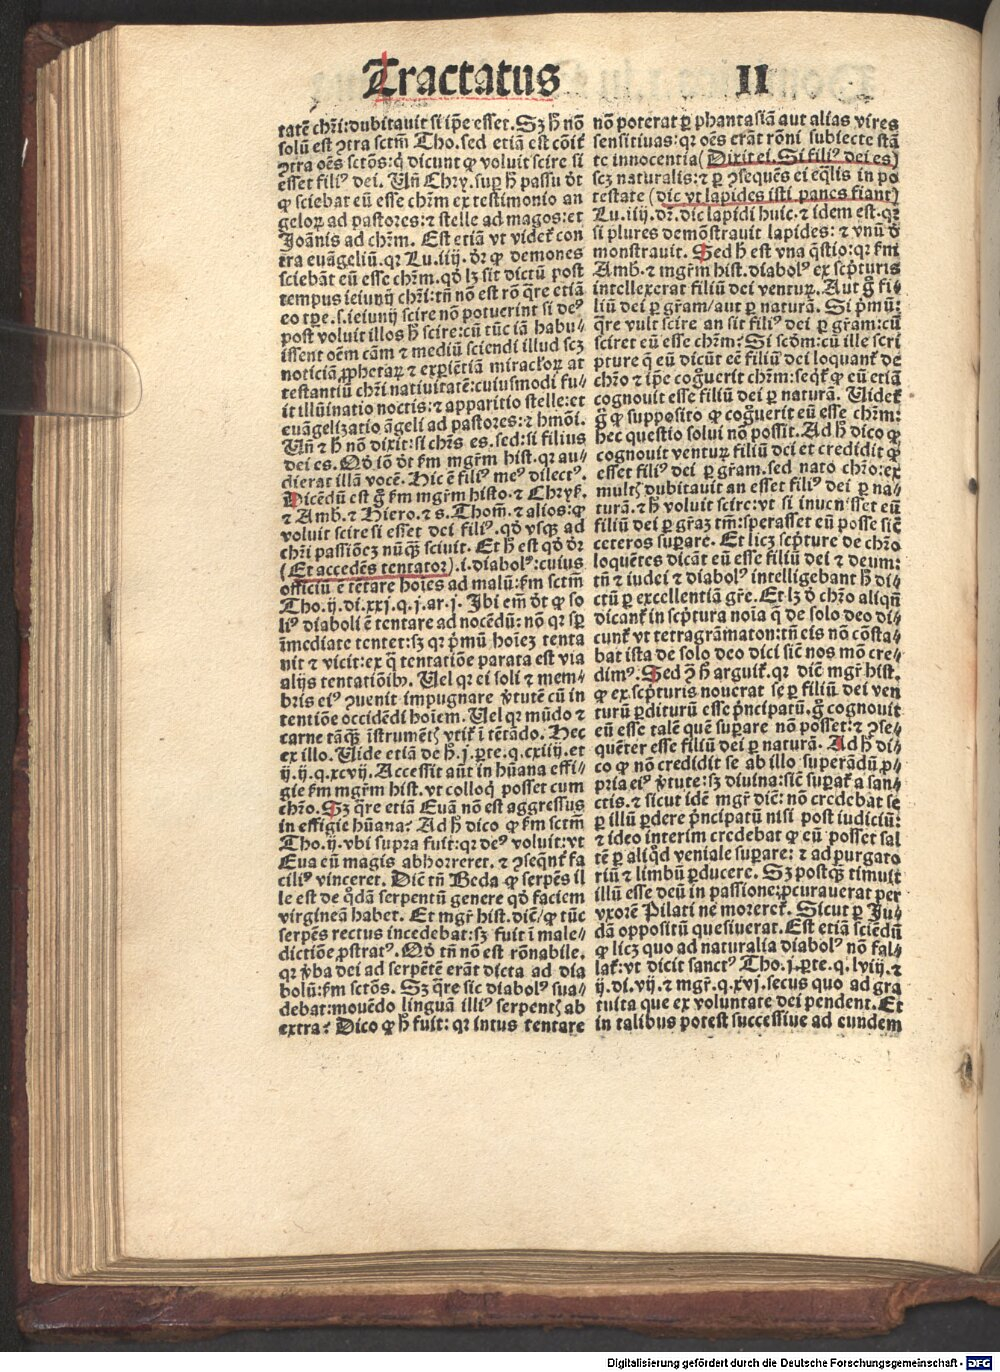 Tractatus II
tatē chri:dubitauit si ip̄e esset. Sz h̄ nō
solū est ꝯtra sctm̄ Tho. sed etiā est cōit̄
ꝯtra oēs sctōs:q̇ dicunt ꝙ voluit scire si
esset filiꝰ dei. Vn̄ Chry. sup h̄ passu d̄t
ꝙ sciebat eū esse chrm ex testimonio an
geloꝝ ad pastores:⁊ stelle ad magos:et
Joānis ad chrm. Est etiā vt videt̄ con
tra euāgeliū.qꝛ Lu.iiij. d̄r ꝙ demones
sciebāt eū esse chrm. qd̄ lz sit dictū post
tempus ieiunij chri:tn̄ nō est rō q̄re etiā
eo tꝑe.s.ieiunij scire nō potuerint si deꝰ
post voluit illos h̄ scire:cū tūc iā habu⸗
issent oēm cām ⁊ mediū sciendi illud scz
noticiā ꝓphetaꝝ ⁊ exꝑiētiā miracłoꝝ at
testantiū chri natiuitatē:cuiusmodi fu⸗
it illūinatio noctis:⁊ apparitio stelle:et
euāgelizatio āgeli ad pastores:⁊ hmōi.
Vn̄ ⁊ h̄ nō dixit:si chrs es. sed:si filius
dei es. Qd̄ iō d̄t fm mgr̄m hist. qꝛ au⸗
dierat illā vocē. Hic ē filiꝰ meꝰ dilectꝰ.
Dicēdū est g̊ fm mgr̄m histo.⁊ Chryſ.
⁊ Amb.⁊ Hiero.⁊ s. Thom̄.⁊ alios:ꝙ
voluit scire si esset dei filiꝰ. qd̄ vsqꝫ ad
chri passiōez nūq̄ꝫ sciuit. Et h̄ est qd̄ d̄r
(Et accedēs tentator).i.diabolꝰ:cuius
officiū ē tētare hoīes ad malū:fm sctm̄
Tho.ij.di.xxj.q.j.ar.j. Ibi em̄ d̄t ꝙ so
liꝰ diaboli ē tentare ad nocēdū:nō qꝛ sp̄
īmediate tentet:sz qꝛ pʼmū hoīez tenta
uit ⁊ vicit:ex q̄ tentatiōe parata est via
alijs tentatiōibꝰ. Vel qꝛ ei soli ⁊ mem⸗
bris eiꝰ ꝯuenit impugnare v̓tutē cū in
tentiōe occidēdi hoīem. Vel qꝛ mūdo ⁊
carne tāq̄ꝫ īstrumētꝭ vtit̄ ī tētādo. Hec
ex illo. Vide etiā de h̄.j.ꝑte.q.cxiiij.et
ij.ij.q.xcvij. Accessit aūt in hūana effi⸗
gie fm mgr̄m hist. vt colloq̇ posset cum
chro. Sz q̄re etiā Euā nō est aggressus
in effigie hūana? Ad h̄ dico ꝙ fm sctm̄
Tho.ij.vbi supra fuit:qꝛ deꝰ voluit:vt
Eua eū magis abhorreret.⁊ ꝯseqn̄t̄ fa
ciliꝰ vinceret. Dic̄ tn̄ Beda ꝙ serpēs il
le est de qͦdā serpentū genere qd̄ faciem
virgineā habet. Et mgr̄ hist. dic̄/ꝙ tūc
serpēs rectus incedebat:sz fuit ī male⸗
dictiōe ꝓstratꝰ. Qd̄ tn̄ nō est rōnabile.
qꝛ v̓ba dei ad serpētē erāt dicta ad dia
bolū:fm sctōs. Sz q̄re sic diabolꝰ sua⸗
debat:mouēdo linguā illiꝰ serpentꝭ ab
extra? Dico ꝙ h̄ fuit: qꝛ intus tentare
nō poterat ꝑ phantasiā aut alias vires
sensitiuas:qꝛ oēs erāt rōni subiecte stā
te innocentia(Dixit ei. Si filiꝰ dei es)
scz naturalis:⁊ ꝑ ꝯsequēs ei eq̄lis in po
testate (dic vt lapides isti panes fiant)
Lu.iiij. d̄r. dic lapidi huic.⁊ idem est.qꝛ
si plures demōstrauit lapides: ⁊ vnū d̄
monstrauit. Sed h̄ est vna q̄stio:qꝛ fm
Amb.⁊ mgr̄m hist.diabolꝰ ex scp̄turis
intellexerat filiū dei venturꝝ. Aut g̊ fi⸗
liū dei ꝑ gr̄am/aut ꝑ naturā. Si pʼmū:
q̄re vult scire an sit filiꝰ dei ꝑ gr̄am:cū
sciret eū esse chrm? Si scd̄m:cū ille scri
pture q̄ eū dicūt eē filiū dei loquant̄ de
chro ⁊ ip̄e cog̊uerit chrm:seqt̄ ꝙ eū etiā
cognouit esse filiū dei ꝑ naturā. Videt̄
g̊ ꝙ supposito ꝙ cog̊uerit eū esse chrm:
hec questio solui nō possit. Ad h̄ dico ꝙ
cognouit venturꝝ filiū dei et credidit ꝙ
esset filiꝰ dei ꝑ gr̄am. sed nato chro:ex
multꝭ dubitauit an esset filiꝰ dei ꝑ na⸗
turā.⁊ h̄ voluit scire:vt si inuenisset eū
filiū dei ꝑ gr̄az tm̄:sperasset eū posse sic̄
ceteros suꝑare. Et licz scp̄ture de chro
loquētes dicāt eū esse filiū dei ⁊ deum:
tn̄ ⁊ iudei ⁊ diabolꝰ intelligebant h̄ di⸗
ctū ꝑ excellentiā gr̄e. Et lz d̄ chro aliqn̄
dicant̄ in scp̄tura noīa q̄ de solo deo di⸗
cunt̄ vt tetragrāmaton:tn̄ eis nō cōsta⸗
bat ista de solo deo dici sic̄ nos mō cre⸗
dimꝰ. Sed ꝯ h̄ arguit̄. qꝛ dic̄ mgr̄ hist.
ꝙ ex scp̄turis nouerat se ꝑ filiū dei ven
turū ꝑditurū esse pʼncipatū.g̊ cognouit
eū esse talē quē suꝑare nō posset:⁊ ꝯse⸗
quēter esse filiū dei ꝑ naturā. Ad h̄ di⸗
co ꝙ nō credidit se ab illo suꝑādū ꝓ⸗
pria eiꝰ v̓tute:sz diuina:sic̄ suꝑat̄ a san⸗
ctis.⁊ sicut idē mgr̄ dic̄: nō credebat se
ꝑ illū ꝑdere pʼncipatū nisi post iudiciū:
⁊ ideo interim credebat ꝙ eū posset sal
tē ꝑ aliqͦd veniale suꝑare: ⁊ ad purgato
riū ⁊ limbū ꝑducere. Sz postq̄ꝫ timuit
illū esse deū in passione:ꝓcurauerat per
vxorē Pilati ne moreret̄. Sicut ꝑ Ju⸗
dā oppositū quesiuerat. Est etiā sciēdū
ꝙ licz quo ad naturalia diabolꝰ nō fal⸗
lat̄:vt dicit sanctꝰ Tho.j.ꝑte.q.lviij.⁊
ij.di.vij.⁊ mgr̄.q.xvj.secus quo ad gra
tuita que ex voluntate dei pendent. Et
in talibus potest successiue ad eundem
Digitalisierung gefördert durch die Deutsche Forschungsgemeinschaft - DFG